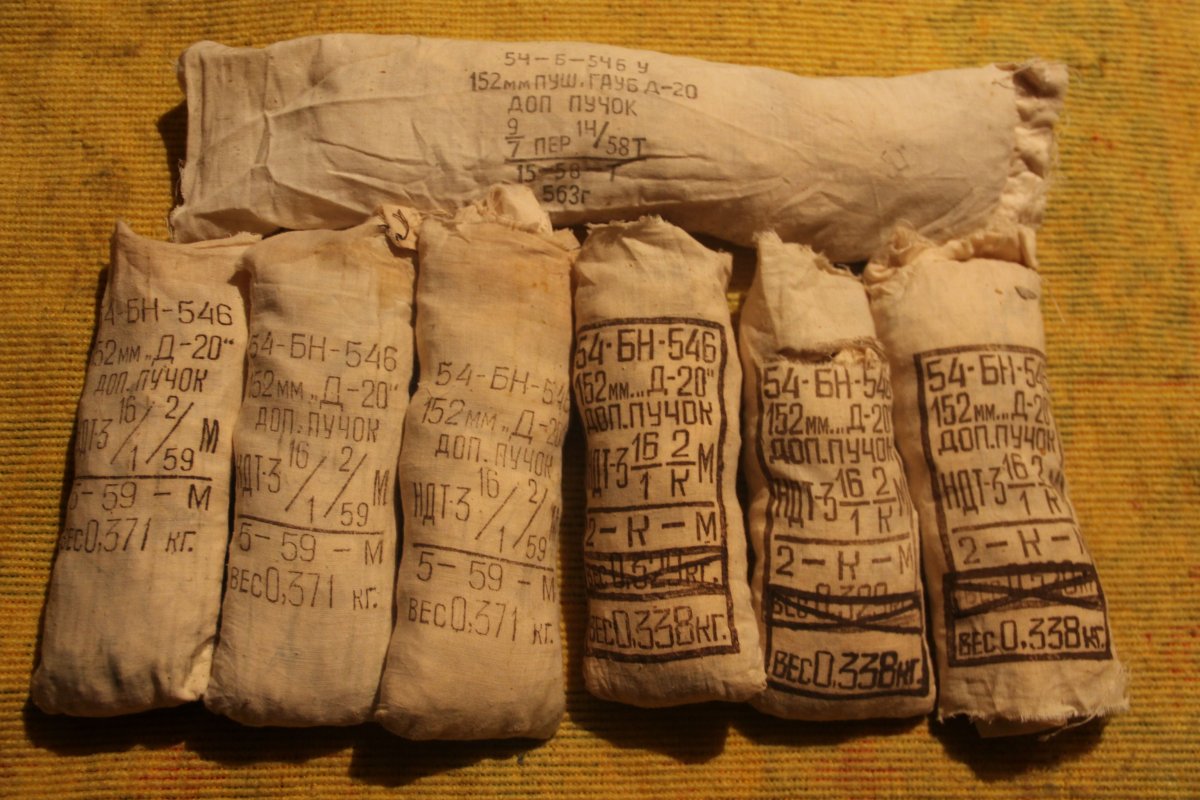 54-Б-546 У
152мм ПУШ. ГАУБ Д-20
ДОП ПУЧОК
9/7 ПЕР 14/58Т
15-58 Т
563г
4-БН-546
52мм „Д-20"
ДОП. ПУЧОК
НДТ-3 16/1 2/59 М
5-59-М
ВЕС 0,371 кг.
54-БН-546
152мм „Д-20"
ДОП. ПУЧОК
НДТ-3 16/1 2/59 М
5-59-М
ВЕС 0,371 кг.
54-БН-54
152мм „Д-20
ДОП. ПУЧОК
НДТ-3 16/1 2/59
5-59-М
ВЕС 0,371 кг.
54-БН-546
152мм...Д-20"
ДОП. ПУЧОК
НДТ-3 16/1 2/К М
2-К-М
ВЕС 0,338 кг.
54-БН-546
152мм...Д-20"
ДОП. ПУЧОК
НДТ-3 16/1 2/К М
2-К-М
ВЕС 0,338 кг.
54-БН-546
152мм...Д-20
ДОП. ПУЧОК
НДТ-3 16/1 2/К
2-К-
ВЕС 0,338 кг.